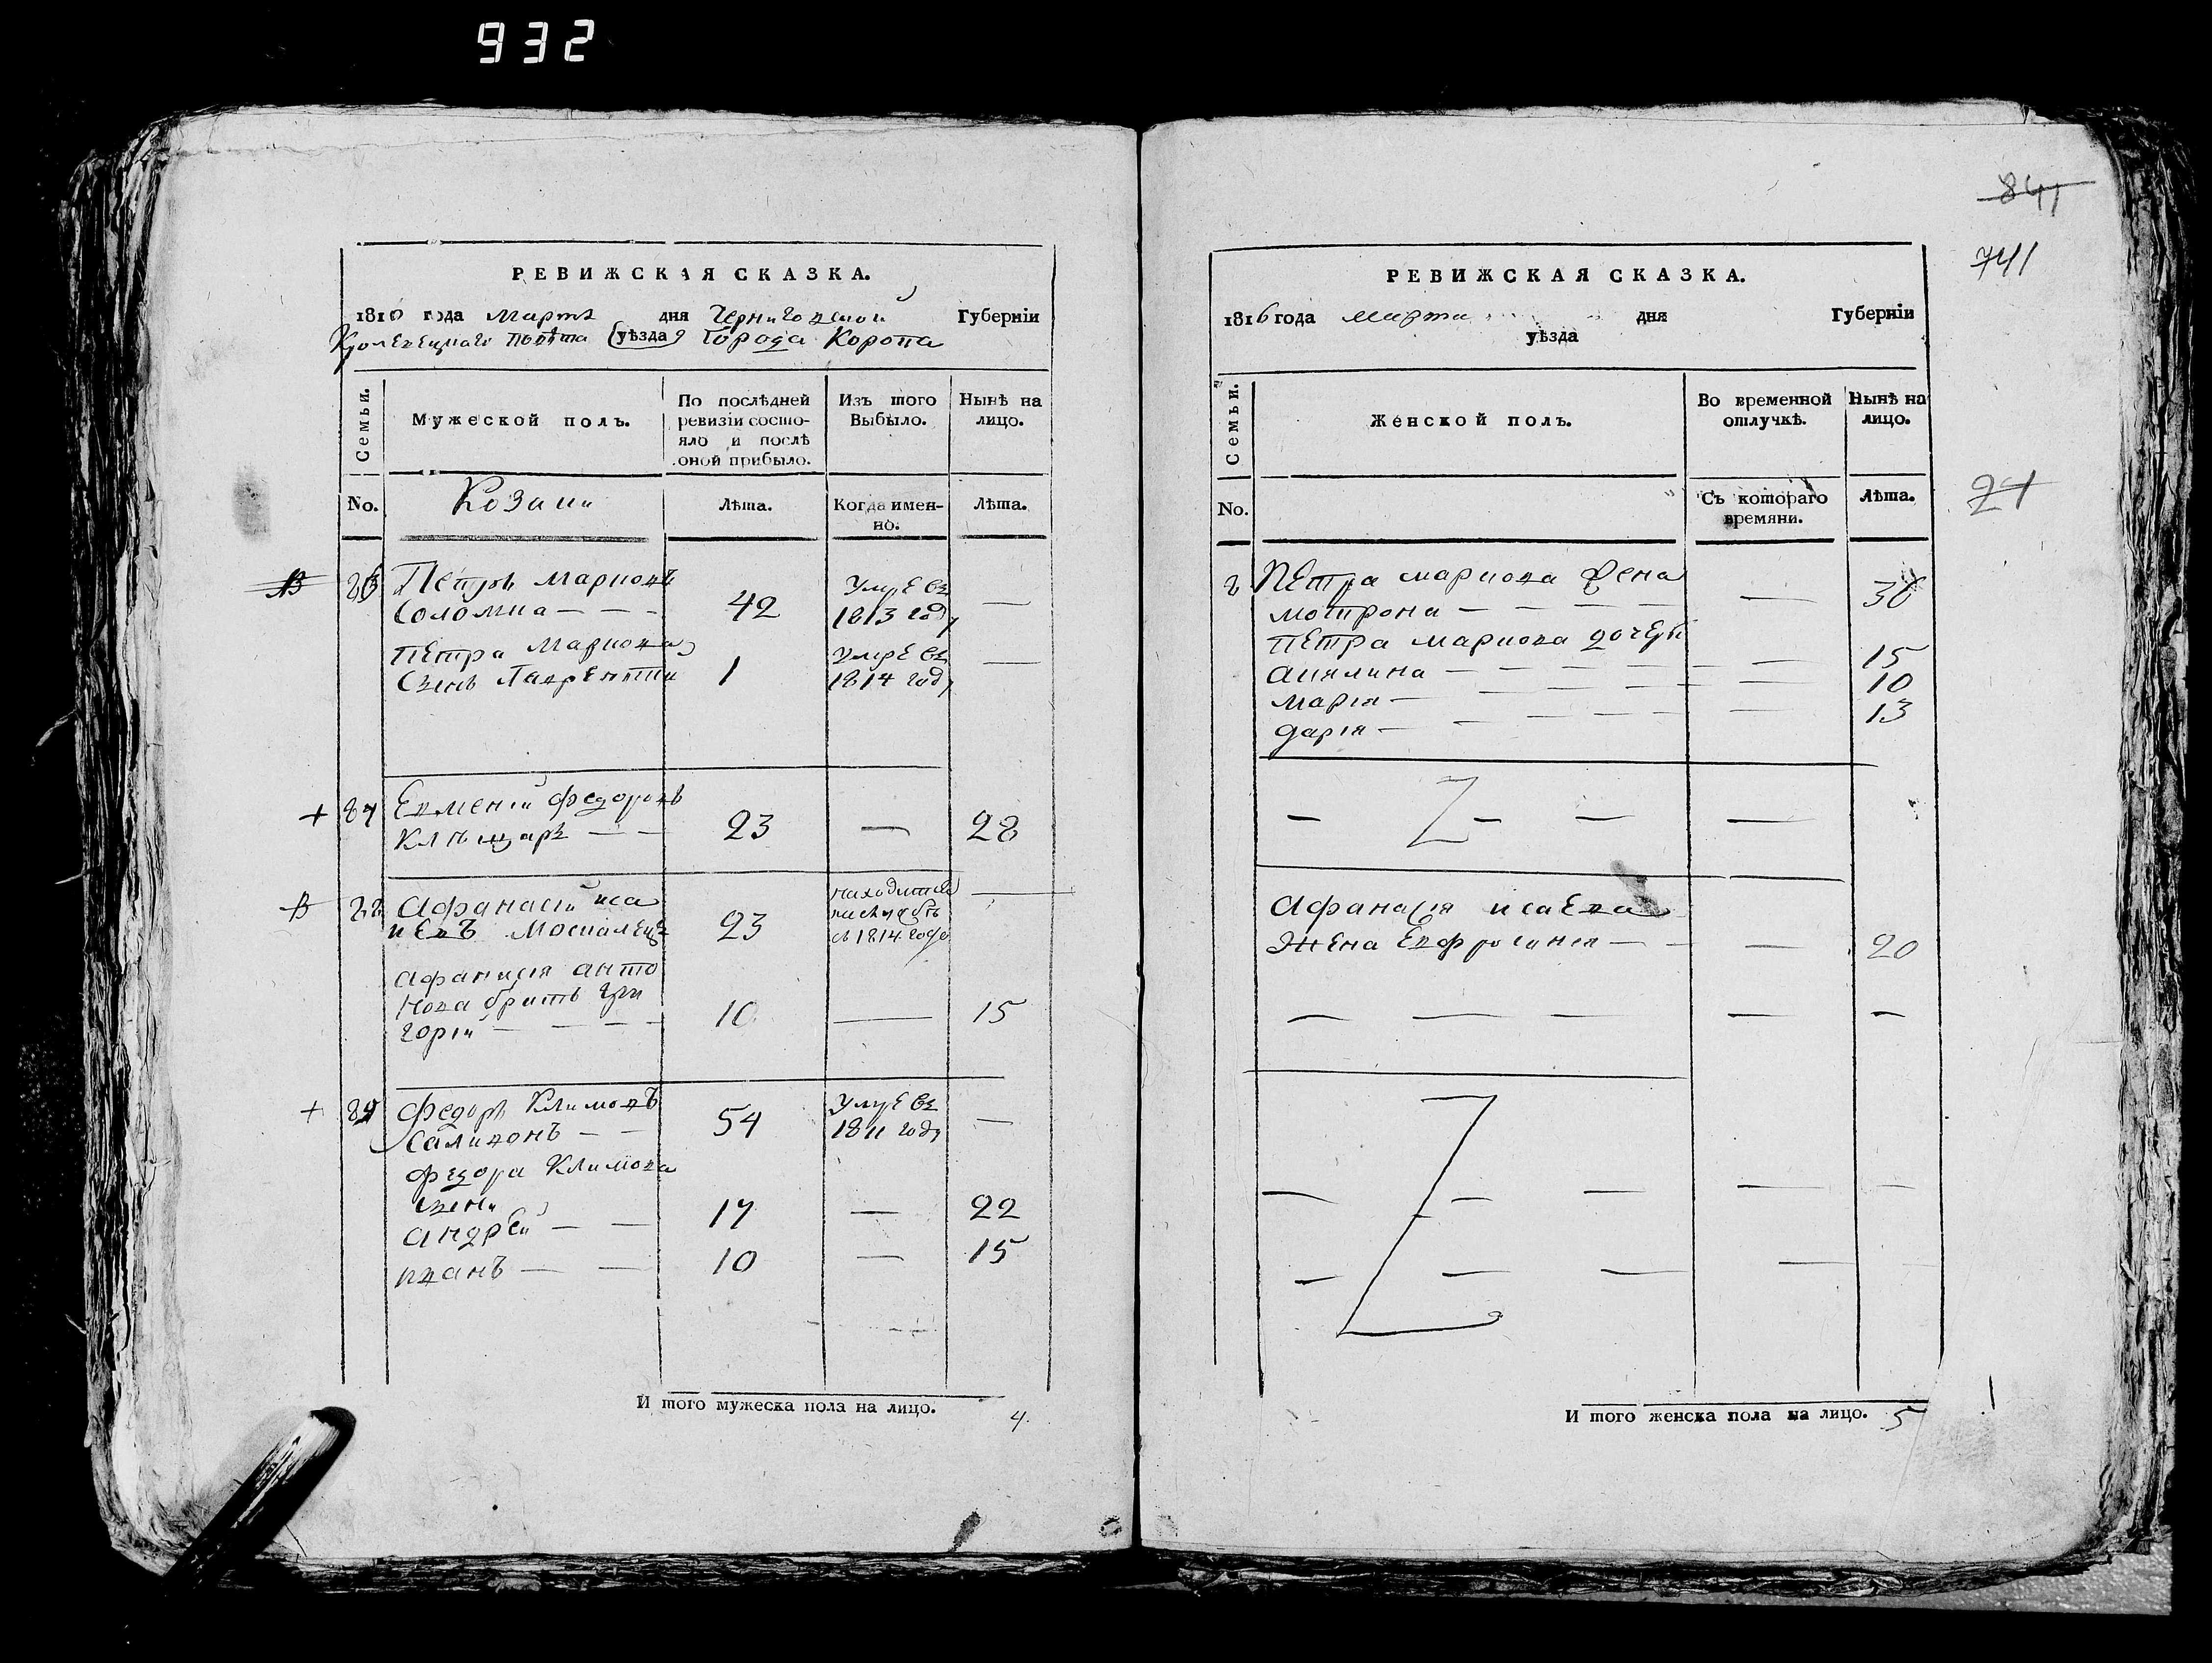 932
841
741
24
РЕВИЖСКАЯ СКАЗКА.
1816 года Марта дня Черниговской Губерніи
Кролевецкаго повѣта уѣзда Города Коропа
Семьи.
Мужеской полъ.
По послѣдней ревизіи состо-
яло и послѣ
оной прибыло.
Изъ того
Выбыло.
Нынѣ на
лицо.
No.
Козаки
Лѣта.
Когда имен-
но.
Лѣта.
В 86 Петръ Марковъ
Соломка — — — 42 Умре въ 1813 году —
Петра Маркова
Сынъ Лаврентiй 1 Умре въ 1814 году —
+ 87 Евменiй Федоровъ
— — 23 — 28
В 88 Афанасiй Иса
иевъ Москалецъ 23 находится
съ 1814 года —
Афанасiя
братъ Гри
горiй — — — — 10 — 15
+ 89 Федоръ Климовъ
— — 54 Умре въ 1811 году —
Федора Климова
сыны
Андрей — — 17 — 22
Иванъ — — 10 — 15
И того мужеска пола на лицо. 4.
РЕВИЖСКАЯ СКАЗКА.
1816 года Марта дня Губерніи
уѣзда
Семьи.
Женской полъ.
Во временной
отлучкѣ.
Нынѣ на
лицо.
No.
Съ котораго
времяни.
Лѣта.
Петра Маркова Жена
Мотрона — — — — — 36
Петра Маркова дочери
Акилина — — — — — 15
Марiя — — — — — 10
Дарiя — — — — — 13
Афанасiя Исаева
Жена Евфросинiя — — — 20
И того женска пола на лицо. 5